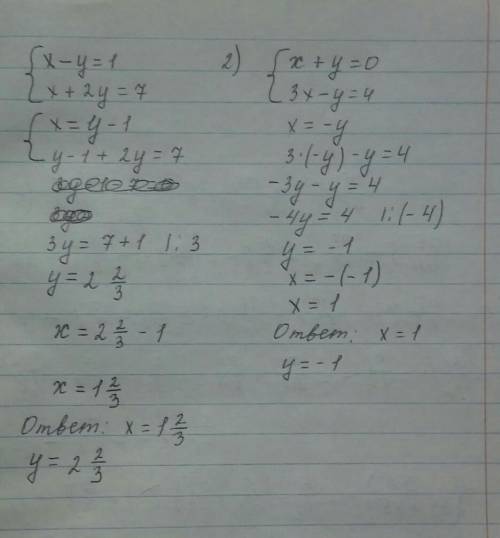 { x - y = 1
x + 2y = 7
{ x = y - 1
y - 1 + 2y = 7
3y = 7 + 1 | : 3
y = 2 2/3
x = 2 2/3 - 1
x = 1 2/3
Ответ: x = 1 2/3
y = 2 2/3
2) { x + y = 0
3x - y = 4
x = -y
3·(-y) - y = 4
-3y - y = 4
-4y = 4 | : (-4)
y = -1
x = -(-1)
x = 1
Ответ: x = 1
y = -1